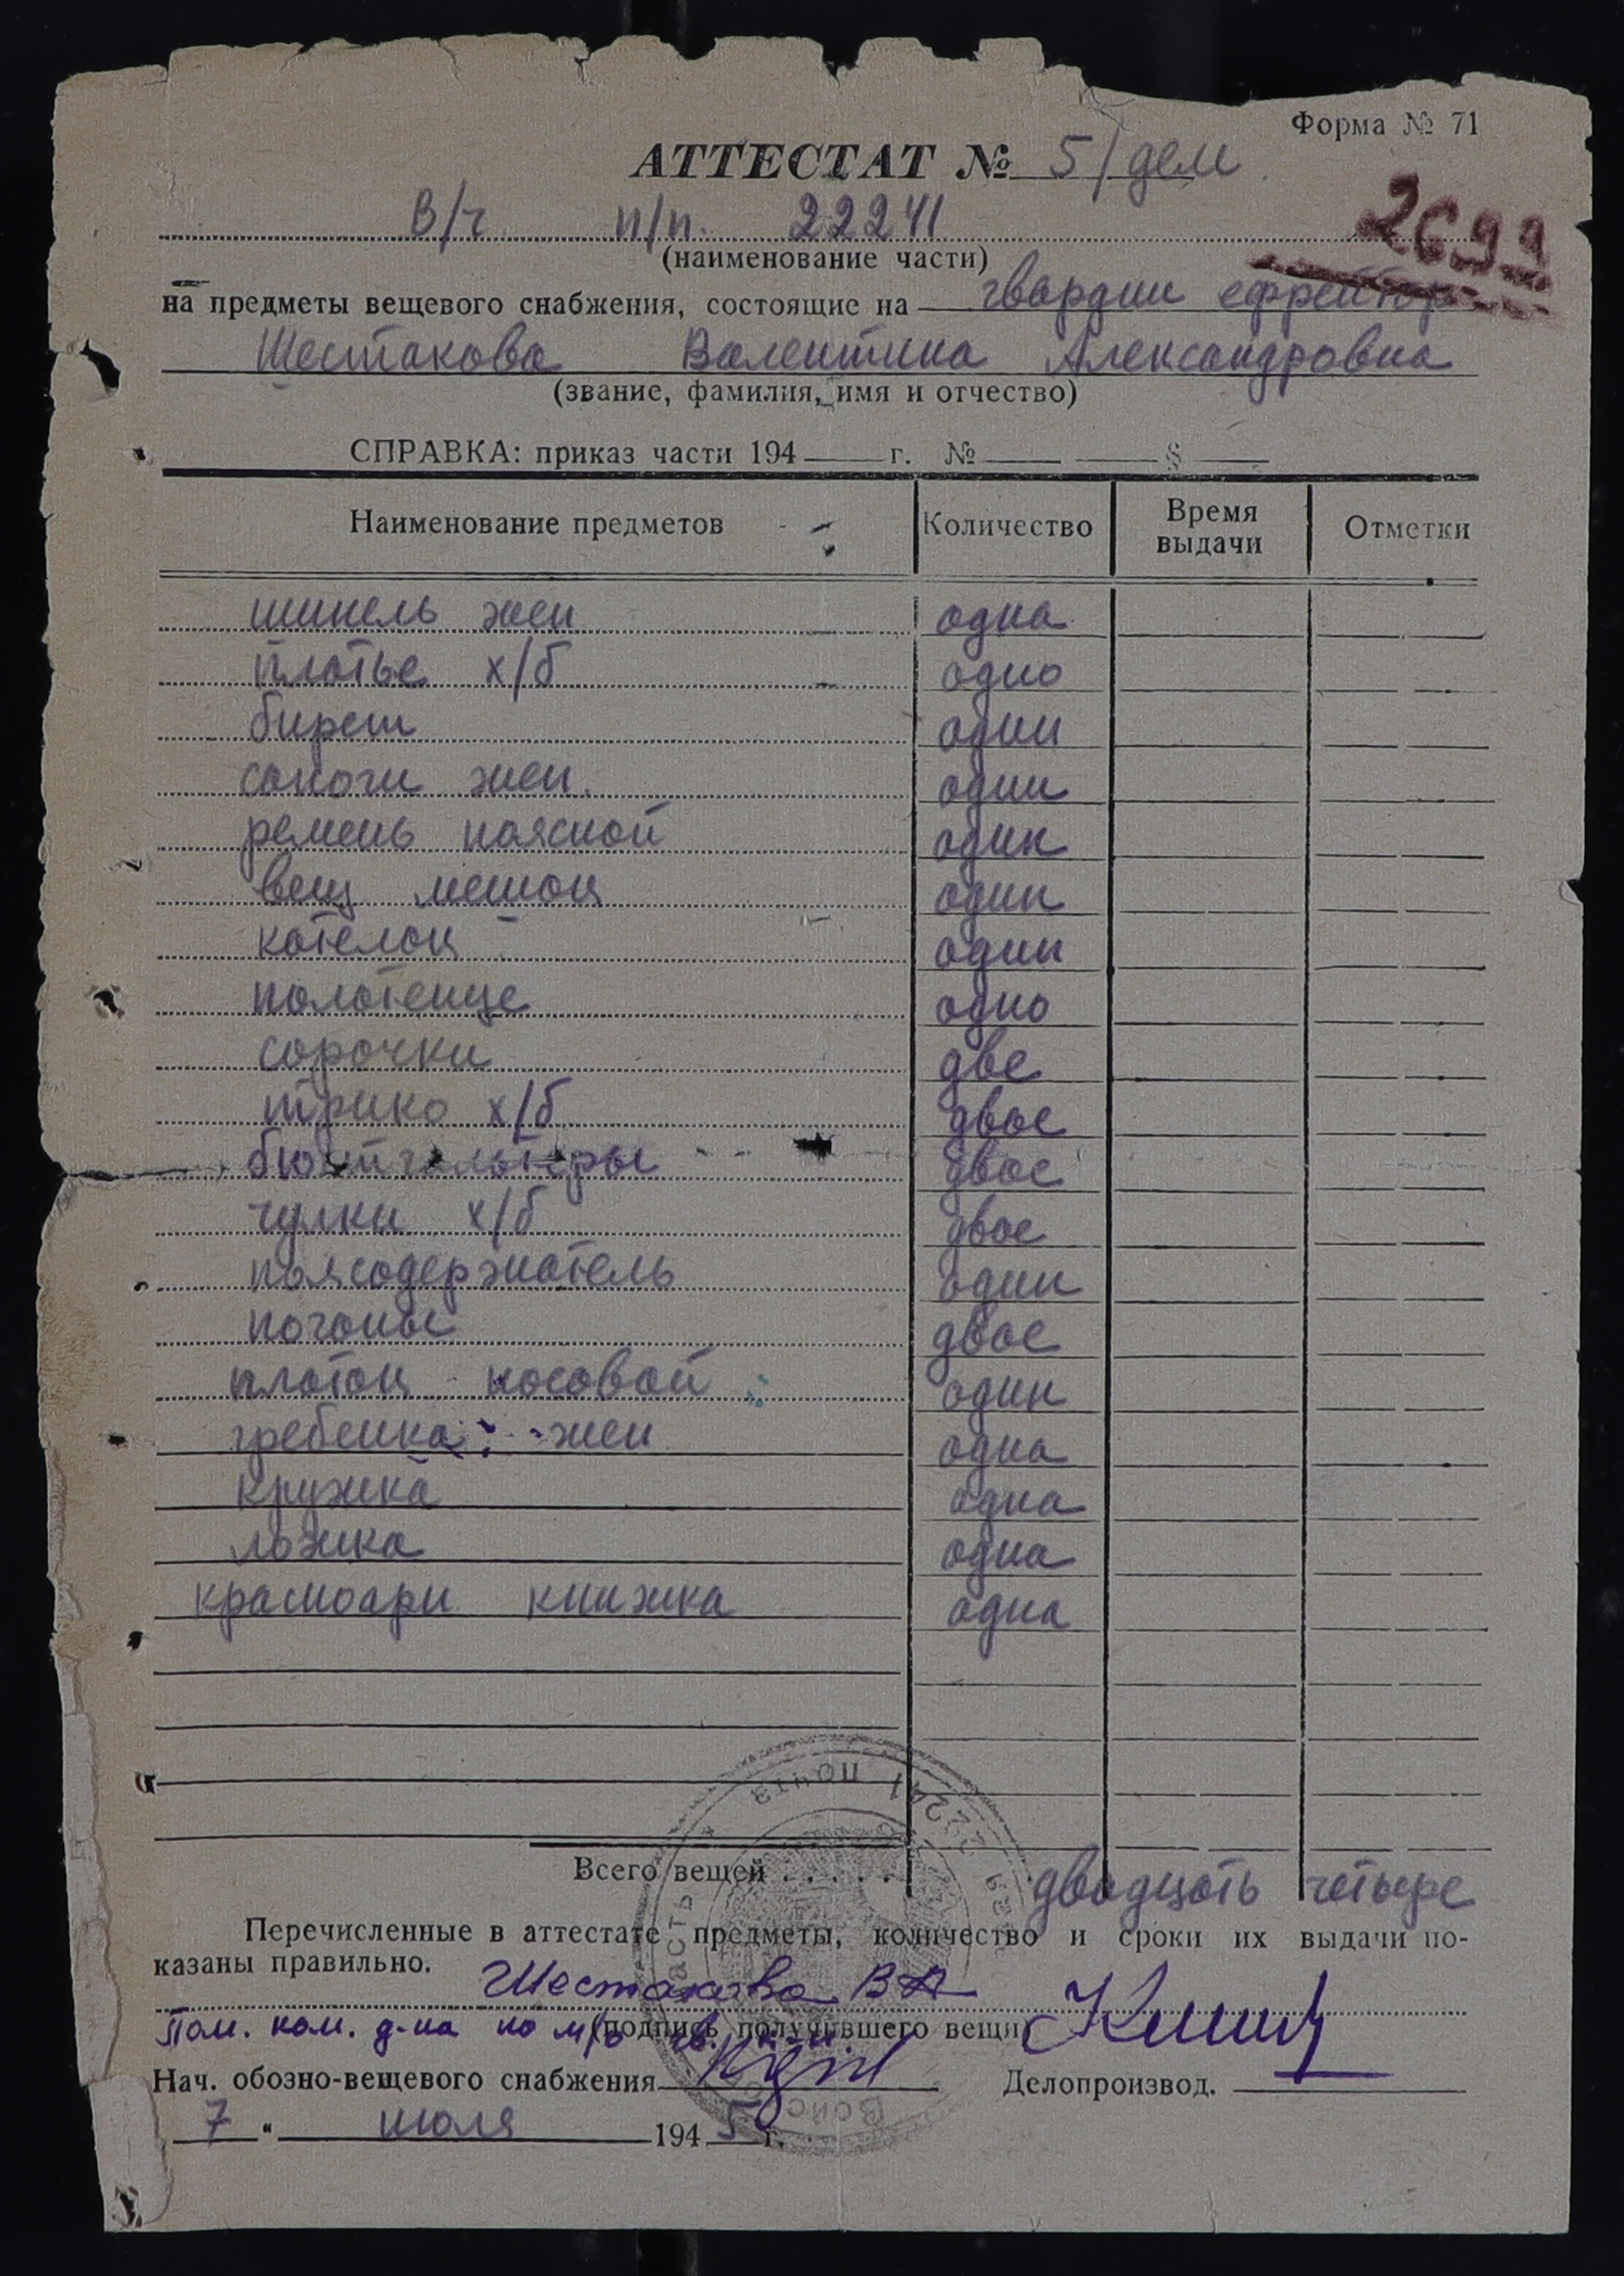 Форма № 71
АТТЕСТАТ № 5/дем
В/ч п/п. 22241
2699
(наименование части)
на предметы вещевого снабжения, состоящие на гвардии ефрейтор
Шестакова Валентина Александровна
(звание, фамилия, имя и отчество)
СПРАВКА: приказ части 194 г. № §
Наименование предметов Количество Время выдачи Отметки
шинель жен одна
платье х/б одно
бирет один
сапоги жен. одни
ремень поясной один
вещ мешок один
котелок один
полотенце одно
сорочки две
трико х/б двое
бюстгальтеры двое
чулки х/б двое
поясодержатель один
погоны двое
платок носовой один
гребенка жен одна
кружка одна
ложка одна
красноарм книжка одна
Всего вещей . . . . . двадцать четыре
Перечисленные в аттестате предметы, количество и сроки их выдачи по-
казаны правильно.
Шестакова ВА
Пом. ком. д-на по м/о гв. к-н
(подпись получившего вещи)
Нач. обозно-вещевого снабжения Делопроизвод.
7 " июля 1945 г.